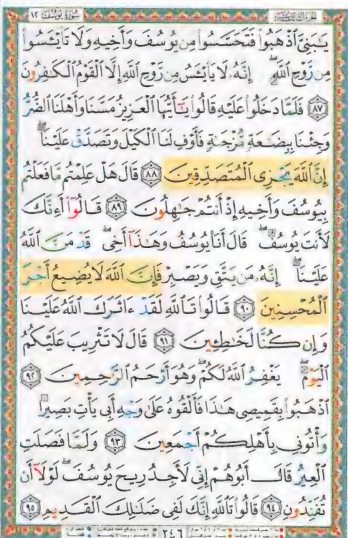 سُورَةُ يُوسُفَ ١٢
يَٰبَنِيَّ ٱذْهَبُوا۟ فَتَحَسَّسُوا۟ مِن يُوسُفَ وَأَخِيهِ وَلَا تَا۟يْـَٔسُوا۟
مِن رَّوْحِ ٱللَّهِ ۖ إِنَّهُۥ لَا يَا۟يْـَٔسُ مِن رَّوْحِ ٱللَّهِ إِلَّا ٱلْقَوْمُ ٱلْكَٰفِرُونَ
٨٧ فَلَمَّا دَخَلُوا۟ عَلَيْهِ قَالُوا۟ يَٰٓأَيُّهَا ٱلْعَزِيزُ مَسَّنَا وَأَهْلَنَا ٱلضُّرُّ
وَجِئْنَا بِبِضَٰعَةٍ مُّزْجَىٰةٍ فَأَوْفِ لَنَا ٱلْكَيْلَ وَتَصَدَّقْ عَلَيْنَآ ۖ
إِنَّ ٱللَّهَ يَجْزِى ٱلْمُتَصَدِّقِينَ ٨٨ قَالَ هَلْ عَلِمْتُم مَّا فَعَلْتُم
بِيُوسُفَ وَأَخِيهِ إِذْ أَنتُمْ جَٰهِلُونَ ٨٩ قَالُوٓا۟ أَءِنَّكَ
لَأَنتَ يُوسُفُ ۖ قَالَ أَنَا۠ يُوسُفُ وَهَٰذَآ أَخِى ۖ قَدْ مَنَّ ٱللَّهُ
عَلَيْنَآ ۖ إِنَّهُۥ مَن يَتَّقِ وَيَصْبِرْ فَإِنَّ ٱللَّهَ لَا يُضِيعُ أَجْرَ
ٱلْمُحْسِنِينَ ٩٠ قَالُوا۟ تَٱللَّهِ لَقَدْ ءَاثَرَكَ ٱللَّهُ عَلَيْنَا
وَإِن كُنَّا لَخَٰطِـِٔينَ ٩١ قَالَ لَا تَثْرِيبَ عَلَيْكُمُ
ٱلْيَوْمَ ۖ يَغْفِرُ ٱللَّهُ لَكُمْ ۖ وَهُوَ أَرْحَمُ ٱلرَّٰحِمِينَ ٩٢
ٱذْهَبُوا۟ بِقَمِيصِى هَٰذَا فَأَلْقُوهُ عَلَىٰ وَجْهِ أَبِى يَأْتِ بَصِيرًا
وَأْتُونِى بِأَهْلِكُمْ أَجْمَعِينَ ٩٣ وَلَمَّا فَصَلَتِ
ٱلْعِيرُ قَالَ أَبُوهُمْ إِنِّى لَأَجِدُ رِيحَ يُوسُفَ ۖ لَوْلَآ أَن
تُفَنِّدُونِ ٩٤ قَالُوا۟ تَٱللَّهِ إِنَّكَ لَفِى ضَلَٰلِكَ ٱلْقَدِيمِ ٩٥
٢٤٦